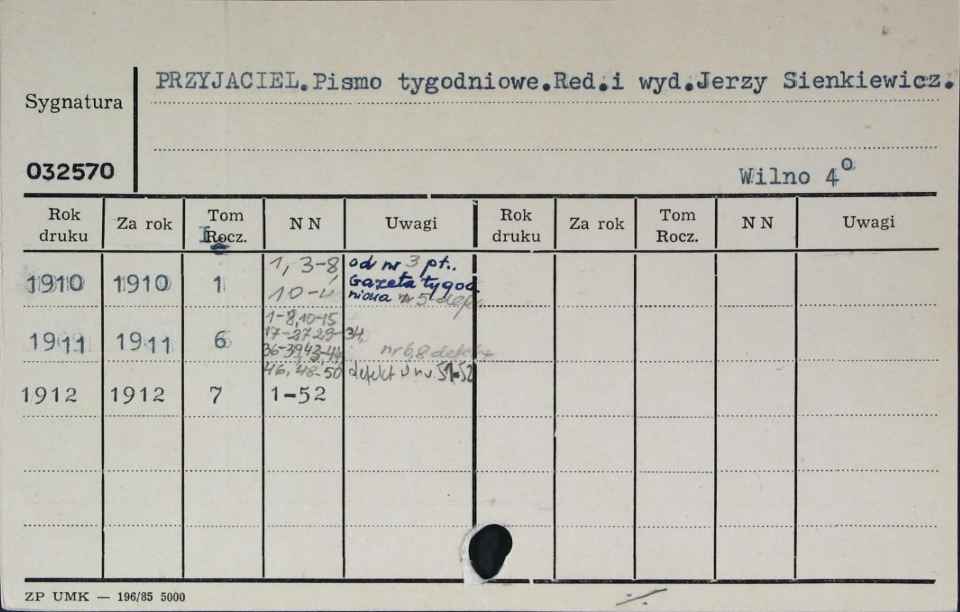 PRZYJACIEL.Pismo tygodniowe.Red.i wyd.Jerzy Sienkiewicz.
Sygnatura
032570
Wilno 4º
Rok druku Za rok Tom Rocz. N N Uwagi Rok druku Za rok Tom Rocz. N N Uwagi
1910 1910 1 1, 3-8, od nr 3 pt.
10- Gazeta tygod
niowa nr 5 defekt
1-8,10-15
1911 1911 6 17-27 29-34,
36-39, nr 6,8 defekt
46, 48-50 defekt nr 51-52
1912 1912 7 1-52
ZP UMK — 196/85 5000